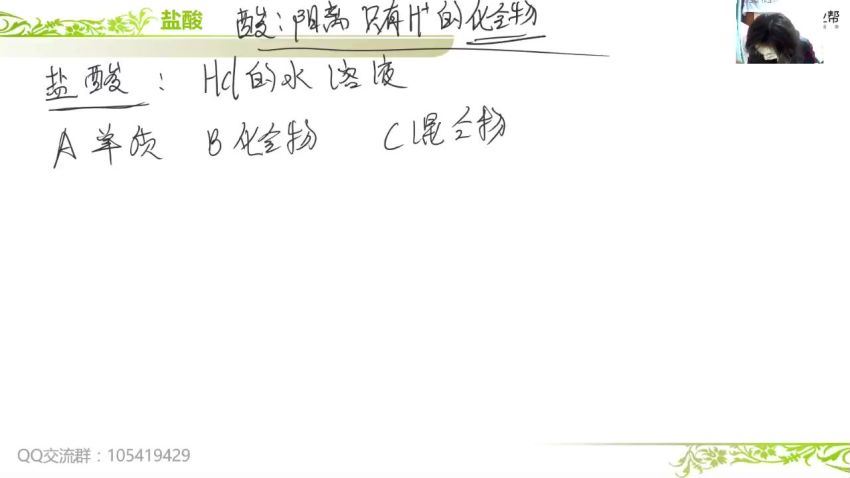 盐酸
酸：阳离 只有H⁺的化合物
盐酸：HCl的水溶液
A 单质 B 化合物 C 混合物
QQ交流群：105419429